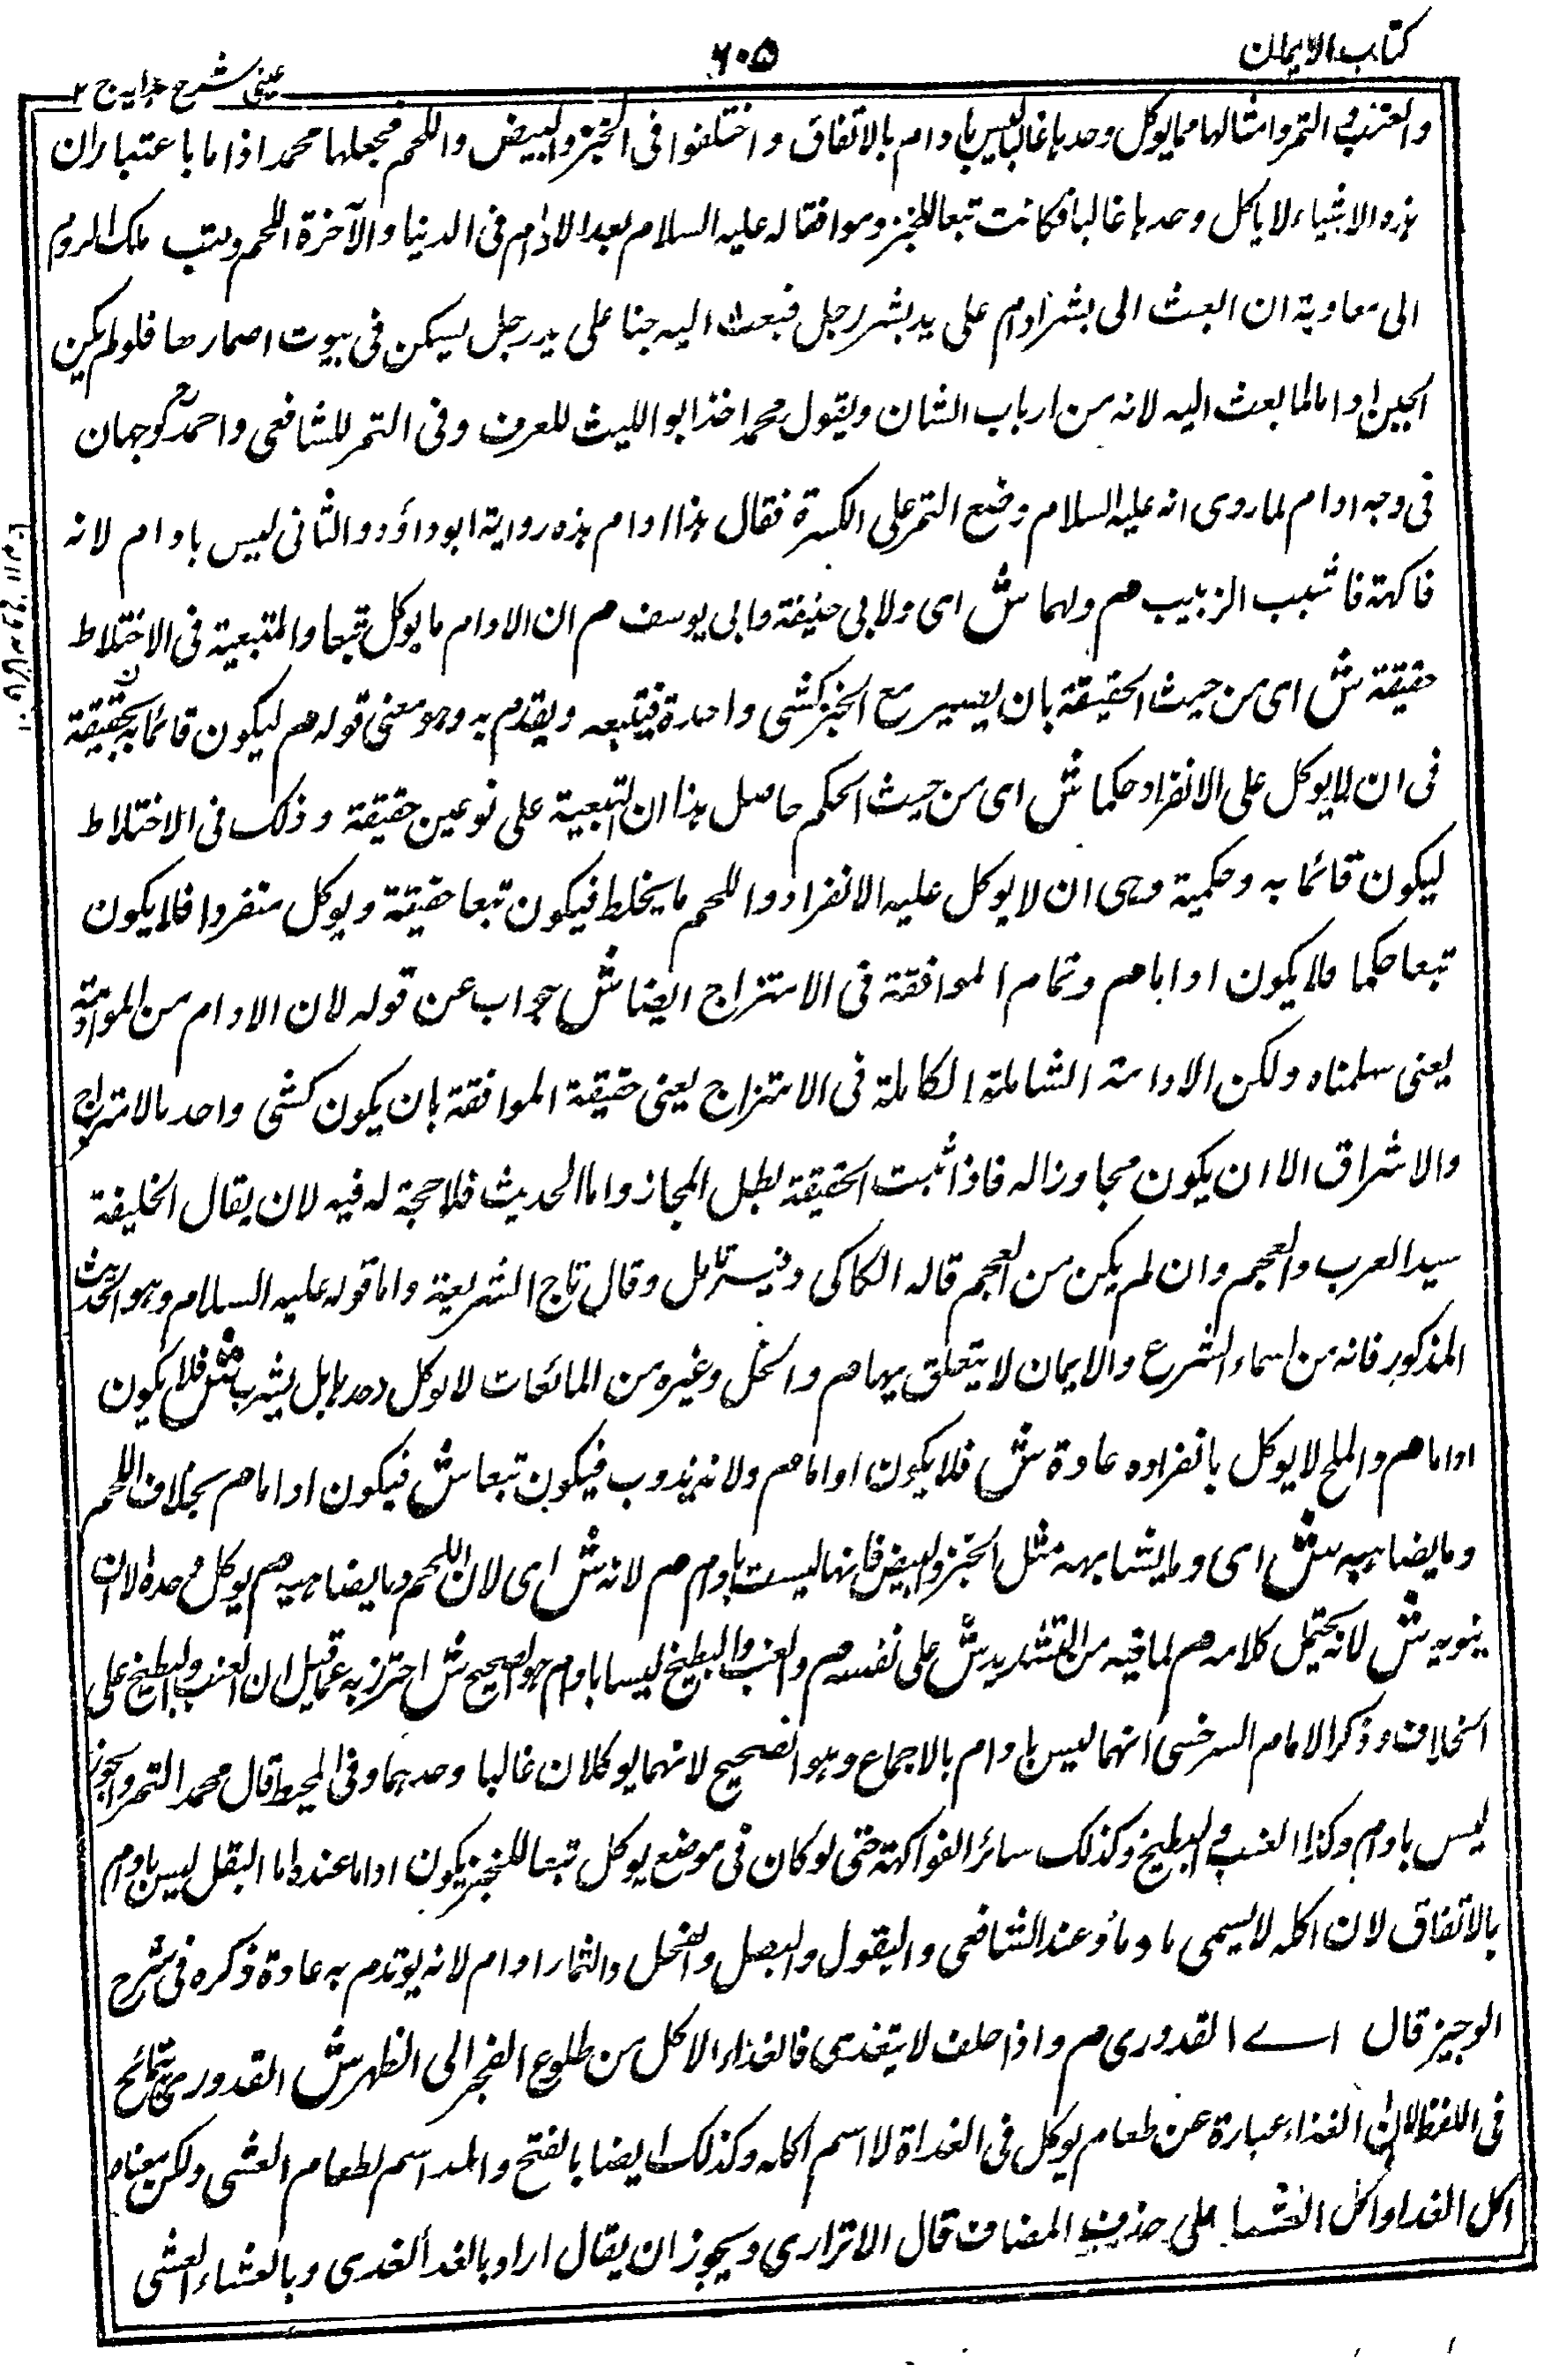 كتاب الايمان
٦٠٥
عينى شرح هدايه ج ٢
والعنب والتمر وامثالها مما يوكل وحدها غالبا ليس بادام بالاتفاق واختلفوا فى الخبز والبيض واللحم فجعلها محمد اداما باعتبار ان
هذه الاشياء لا ياكل وحدها غالبا فكانت تبعا للخبز وموافقا له عليه السلام بعد الادام فى الدنيا والآخرة اللحم وكتب ملك الروم
الى معاوية ان ابعث الى بشر ادام على يد بشر رجل فبعث اليه جبنا على يد رجل يسكن فى بيوت اصهارها فلو لم يكن
الجبن اداما لما بعث اليه لانه من ارباب الشان وبقول محمد اخذ ابو الليث للعرف وفى التمر للشافعى واحمدؒ وجهان
فى وجه ادام لما روى انه عليه السلام وضع التمر على الكسرة فقال هذا ادام هذه رواية ابو داؤد والثانى ليس بادام لانه
فاكهة فاشبب الزبيب م ولهما ش اى ولابى حنيفة وابى يوسف م ان الادام ما يوكل تبعا والتبعية فى الاختلاط
حقيقة ش اى من حيث الحقيقة بان يصير مع الخبز كشى واحدة فيتبعه ويقدم به وهو معنى قوله م ليكون قائما به حقيقة
فى ان لا يوكل على الانفراد حكما ش اى من حيث الحكم حاصل هذا ان التبعية على نوعين حقيقة وذلك فى الاختلاط
ليكون قائما به وحكمية وهى ان لا يوكل عليه الانفراد واللحم ما يخلط فيكون تبعا حقيقة ويوكل منفردا فلا يكون
تبعا حكما فلا يكون اداما م وتمام الموافقة فى الامتزاج ايضا ش جواب عن قوله لان الادام من الموادمة
يعنى سلمناه ولكن الادامة الشاملة الكاملة فى الامتزاج يعنى حقيقة الموافقة بان يكون كشى واحد بالامتزاج
والاشراق الا ان يكون مجاوزا له فاذا ثبت الحقيقة بطل المجاز واما الحديث فلا حجة له فيه لان يقال الخليفة
سيد العرب والعجم وان لم يكن من العجم قاله الكاكى وفيه تامل وقال تاج الشريعة واما قوله عليه السلام وهو الحديث
المذكور فانه من اسماء الشرع والايمان لا يتعلق بها م والخل وغيره من المائعات لا يوكل وحدها بل يشرب ش فلا يكون
اداما م والملح لا يوكل بانفراده عادة ش فلا يكون اداما م ولانه يذوب فيكون تبعا ش فيكون اداما م بخلاف اللحم
وما يضاهيه ش اى وما يشابهه مثل الخبز والبيض فانها ليست بادام م لانه ش اى لان اللحم وما يضاهيه م يوكل وحده الا ان
ينويه ش لانه يحتمل كلامه م لما فيه من التشديد ش على نفسه م والعنب والبطيخ ليسا بادام هو الصحيح ش احترز به عما قيل ان العنب والبطيخ على
الخلاف وذكر الامام السرخسى انهما ليس بادام بالاجماع وهو الصحيح لانهما يوكلان غالبا وحدهما وفى المحيط قال محمد التمر والجوز
ليس بادام وكذا العنب والبطيخ وكذلك سائر الفواكهة حتى لو كان فى موضع يوكل تبعا للخبز يكون اداما عنده اما البقل ليس بادام
بالاتفاق لان اكله لا يسمى مادما وعند الشافعى والبقول والبصل والفجل والثمار ادام لانه يوتدم به عادة ذكره فى شرح
الوجيز قال اے القدورى م واذا حلف لا يتغدى فالغداء الاكل من طلوع الفجر الى الظهر ش القدورى تسامح
فى اللفظ لان الغداء عبارة عن طعام يوكل فى الغداة لا اسم اكله وكذلك ايضا بالفتح والمد اسم لطعام العشى ولكن معناه
اكل الغدا واكل العشا على حذف المضاف قال الاترازى ويجوز ان يقال اراد بالغدا الغدى وبالعشاء العشى